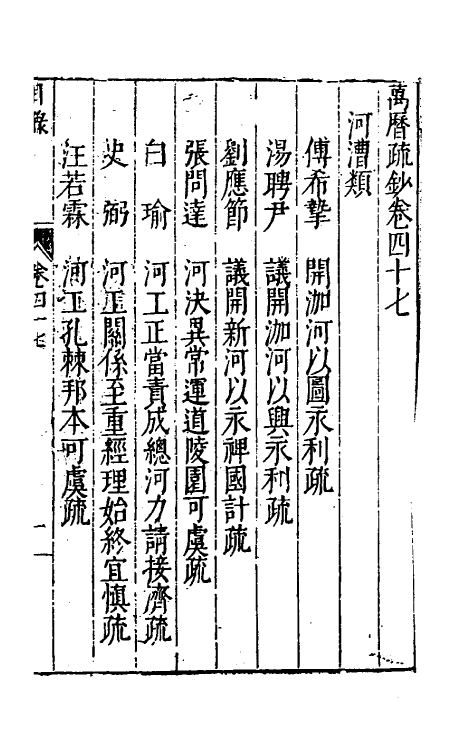 萬曆疏鈔卷四十七
河漕類
傅希摯 開泇河以圖永利疏
湯聘尹 議開泇河以興永利疏
劉應節 議開新河以永裨國計疏
張問達 河決異常運道陵園可虞疏
白瑜 河工正當責成總河力請接濟疏
史弼 河工關係至重經理始終宜慎疏
汪若霖 河工孔棘邦本可虞疏
目錄 卷四十七 一